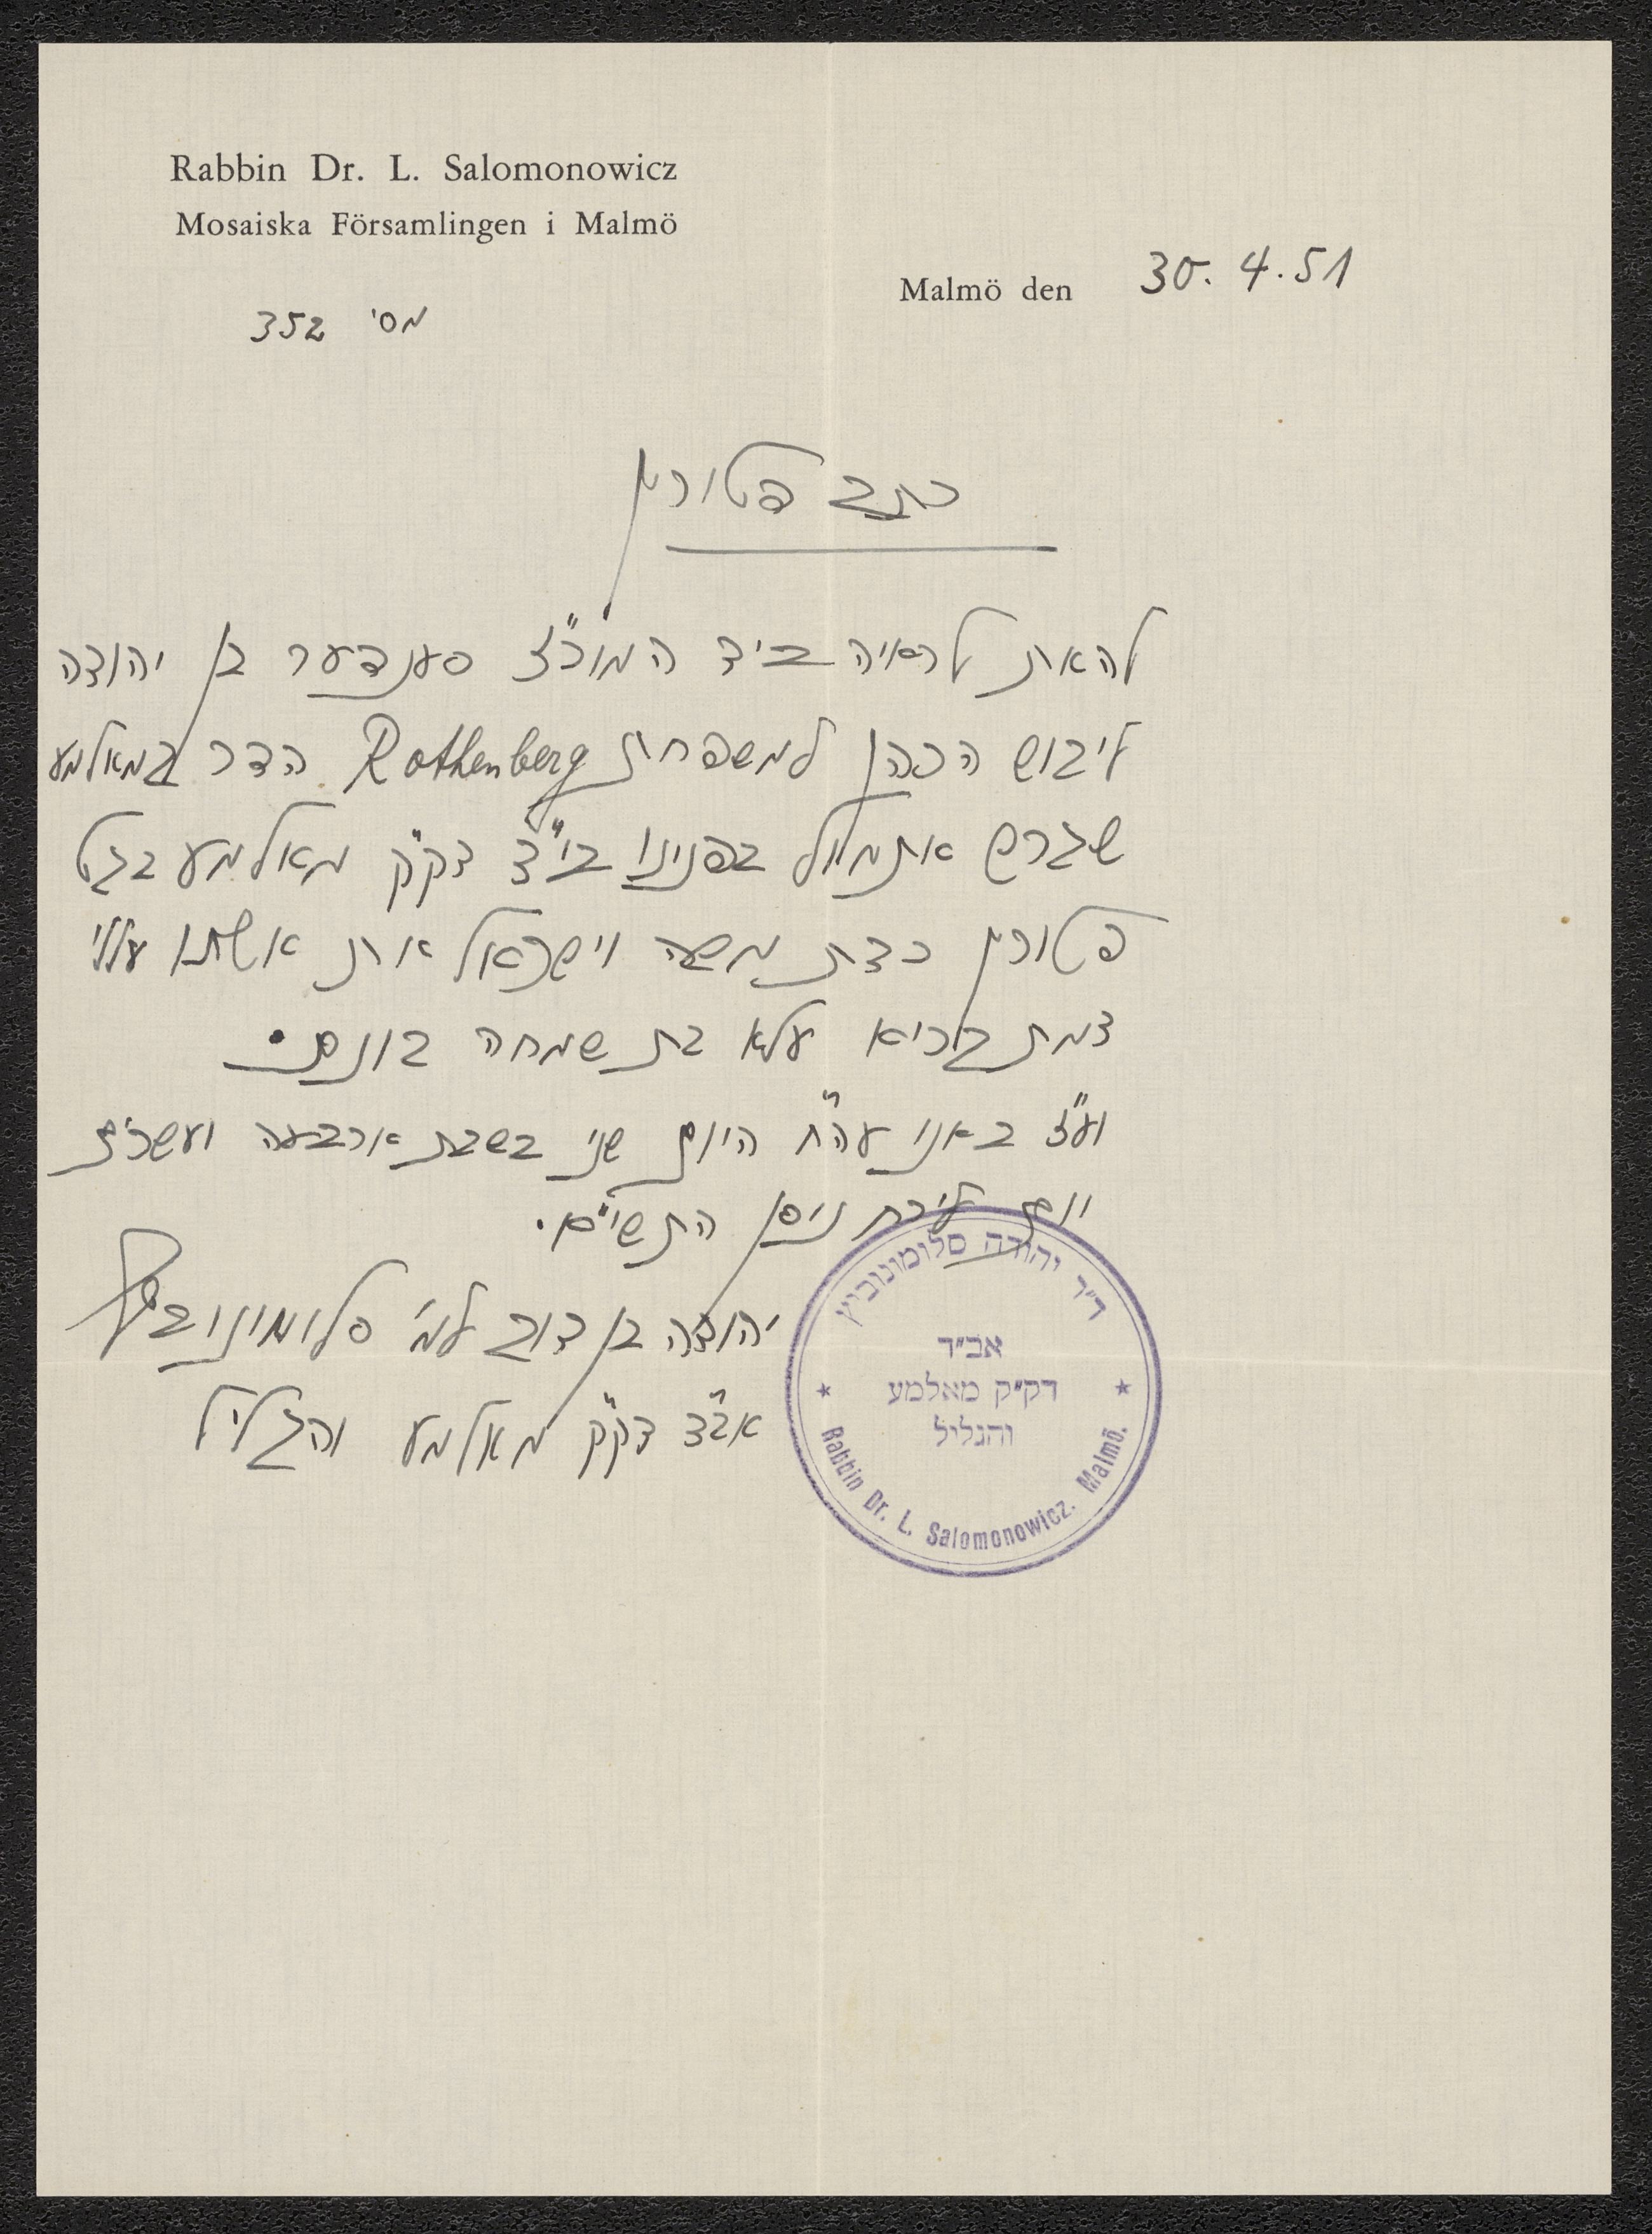 Rabbin Dr. L. Salomonowicz
Mosaiska Församlingen i Malmö
Malmö den 30. 4. 51
מס' 352
כתב פטורין
להאות לראיה ביד המוכ"ז סענדער בן יהודה
ליבוש הכהן למשפחת Rothenberg הדר במאלמע
שגרש אתמול בפנינו בי"ד דק"ק מאלמע בגט
פטורין כדת משה וישראל את אשתו
בריא עלא בת שמחה בונם.
וע"ז באנו עה"ח היום שני בשבת ארבעה ועשרים
יום לירח ניסן התשי"א.
יהודה בן דוב למ' סלומונוביץ
אב"ד דק"ק מאלמע והגליל
ד"ר יהודה סלומונוביץ
אב"ד
דק"ק מאלמע
והגליל
Rabbin Dr. L. Salomonowicz. Malmö.